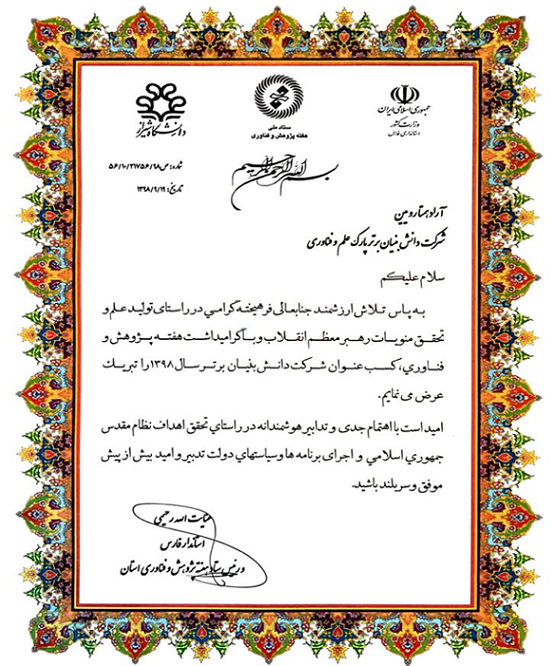 دانشگاه شیراز
ستاد ملی
هفته پژوهش و فناوری
جمهوری اسلامی ایران
وزارت کشور
استانداری فارس
بسم الله الرحمن الرحیم
شماره: ص/۵۶/۱۰/۲۱۷۵۶/۹۸
تاریخ: ۱۳۹۸/۹/۱۹
آراد هستارومین
شرکت دانش بنیان برتر پارک علم و فناوری
سلام علیکم
به پاس تلاش ارزشمند جنابعالی فرهیخته گرامی در راستای تولید علم و
تحقق منویات رهبر معظم انقلاب و با گرامیداشت هفته پژوهش و
فناوری، کسب عنوان شرکت دانش بنیان برتر سال ۱۳۹۸ را تبریک
عرض می نمایم.
امید است با اهتمام جدی و تدابیر هوشمندانه در راستای تحقق اهداف نظام مقدس
جمهوری اسلامی و اجرای برنامه ها و سیاستهای دولت تدبیر و امید بیش از پیش
موفق و سربلند باشید.
عنایت الله رحیمی
استاندار فارس
و رئیس ستاد هفته پژوهش و فناوری استان